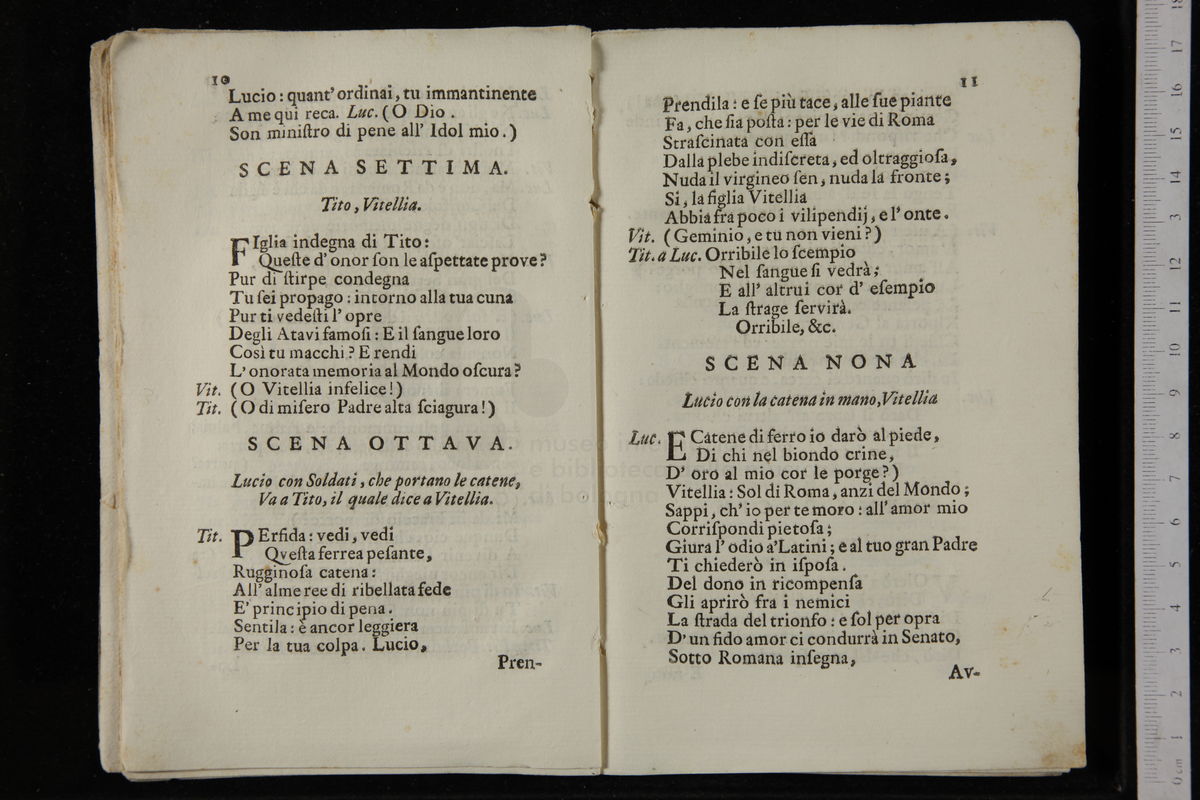 10
Lucio : quant' ordinai, tu immantinente
A me quì reca. Luc. (O Dio .
Son miniſtro di pene all' Idol mio.)
SCENA SETTIMA.
Tito, Vitellia.
FIglia indegna di Tito:
Queſte d' onor ſon le aſpettate prove?
Pur di ſtirpe condegna
Tu ſei propago : intorno alla tua cuna
Pur ti vedeſti l' opre
Degli Atavi famoſi : E il ſangue loro
Così tu macchi? E rendi
L' onorata memoria al Mondo oſcura?
Vit. (O Vitellia infelice!)
Tit. (O di miſero Padre alta ſciagura!)
SCENA OTTAVA.
Lucio con Soldati, che portano le catene,
Va a Tito, il quale dice a Vitellia.
Tit. PErfida: vedi, vedi
Queſta ferrea peſante,
Rugginoſa catena:
All' alme ree di ribellata fede
E' principio di pena.
Sentila: è ancor leggiera
Per la tua colpa. Lucio,
Pren-
11
Prendila : e ſe più tace, alle ſue piante
Fa, che ſia poſta : per le vie di Roma
Straſcinata con eſſa
Dalla plebe indiſcreta, ed oltraggioſa,
Nuda il virgineo ſen, nuda la fronte;
Si, la figlia Vitellia
Abbia fra poco i vilipendij, e l' onte.
Vit. (Geminio, e tu non vieni?)
Tit. a Luc. Orribile lo ſcempio
Nel ſangue ſi vedrà;
E all' altrui cor d' eſempio
La ſtrage ſervirà.
Orribile, &c.
SCENA NONA
Lucio con la catena in mano, Vitellia
Luc. E Catene di ferro io darò al piede,
Di chi nel biondo crine,
D' oro al mio cor le porge?)
Vitellia : Sol di Roma, anzi del Mondo;
Sappi, ch' io per te moro : all' amor mio
Corriſpondi pietoſa;
Giura l' odio a' Latini; e al tuo gran Padre
Ti chiederò in iſpoſa.
Del dono in ricompenſa
Gli aprirò fra i nemici
La ſtrada del trionfo : e ſol per opra
D' un fido amor ci condurrà in Senato,
Sotto Romana inſegna,
Av-